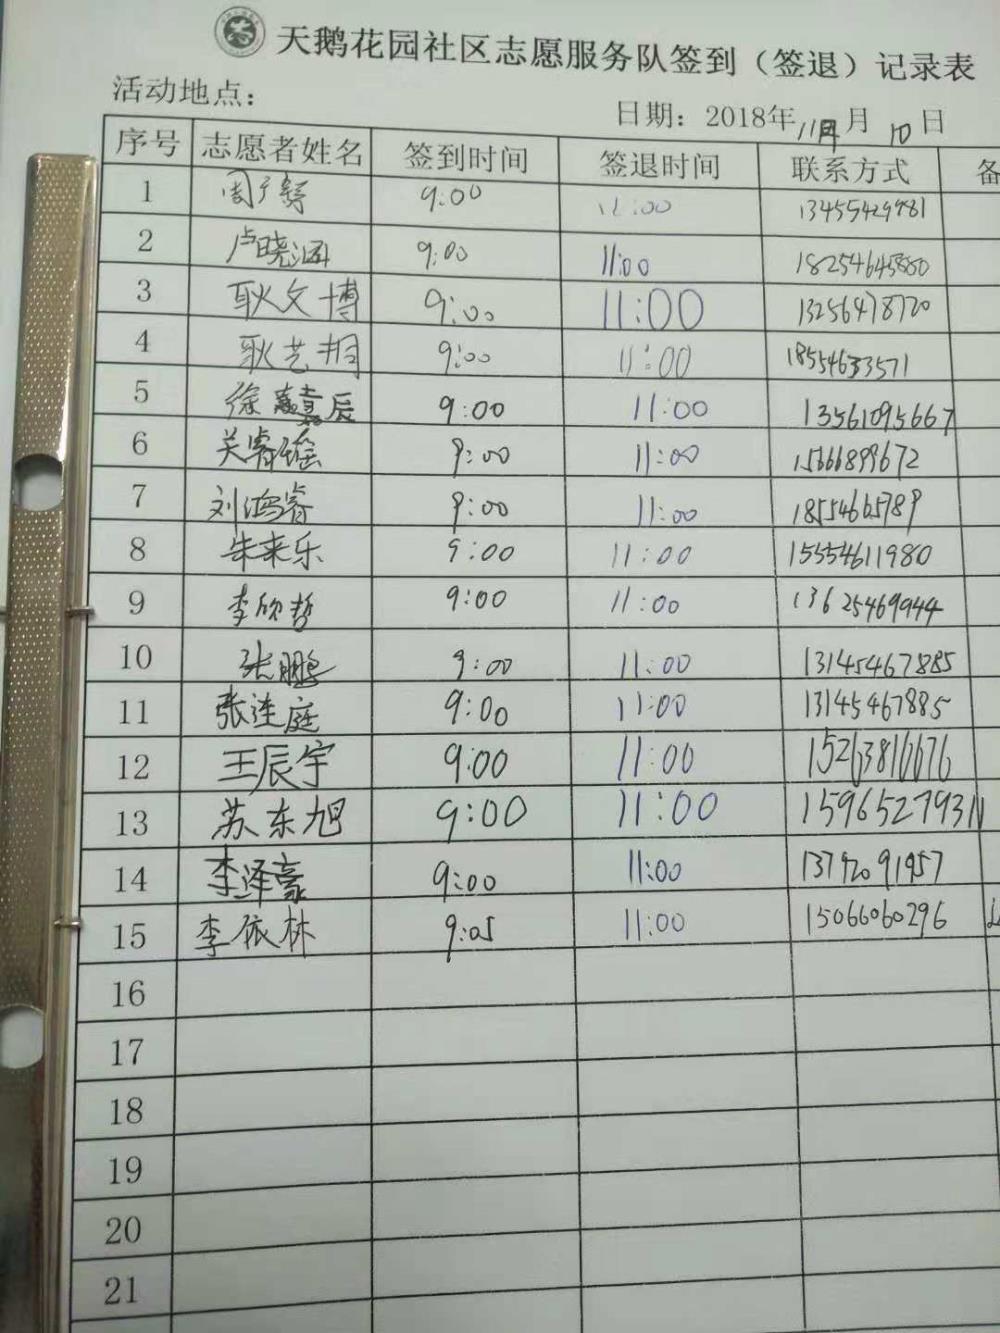 天鹅花园社区志愿服务队签到（签退）记录表
活动地点：
日期：2018年11月10日
序号 志愿者姓名 签到时间 签退时间 联系方式 备
1 9:00 11:00 13455429981
2 卢晓涵 9:00 11:00 18254645880
3 耿文博 9:00 11:00 13256478720
4 耿艺桐 9:00 11:00 18554633571
5 徐 辰 9:00 11:00 13561095667
6 关睿瑶 9:00 11:00 15666899672
7 刘鸿睿 9:00 11:00 18554665789
8 朱来乐 9:00 11:00 15554611980
9 李欣哲 9:00 11:00 13625469944
10 张鹏 9:00 11:00 13145467885
11 张连庭 9:00 11:00 13145467885
12 王辰宇 9:00 11:00 15263816676
13 苏东旭 9:00 11:00 15965279311
14 李泽豪 9:00 11:00 13792091957
15 李依林 9:05 11:00 15066060296
16
17
18
19
20
21